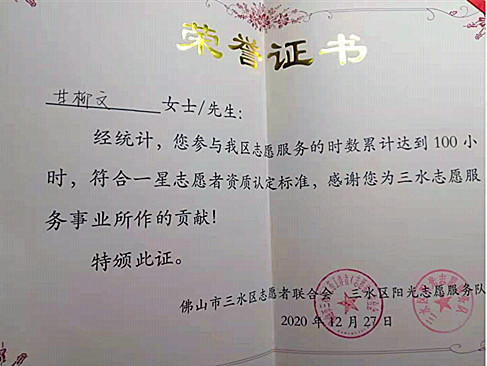 荣誉证书
甘柳文 女士/先生:
经统计，您参与我区志愿服务的时数累计达到100小
时，符合一星志愿者资质认定标准，感谢您为三水志愿服
务事业所作的贡献!
特颁此证。
佛山市三水区志愿者联合会 三水区阳光志愿服务队
2020年12月27日